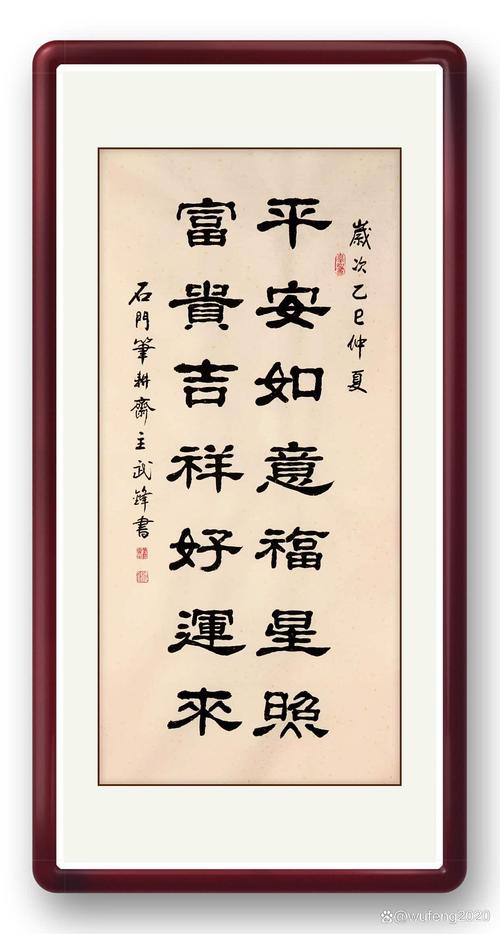 歲次乙巳仲夏
平安如意福星照
富貴吉祥好運來
石門筆耕齋主武鋒書
@wufeng2020